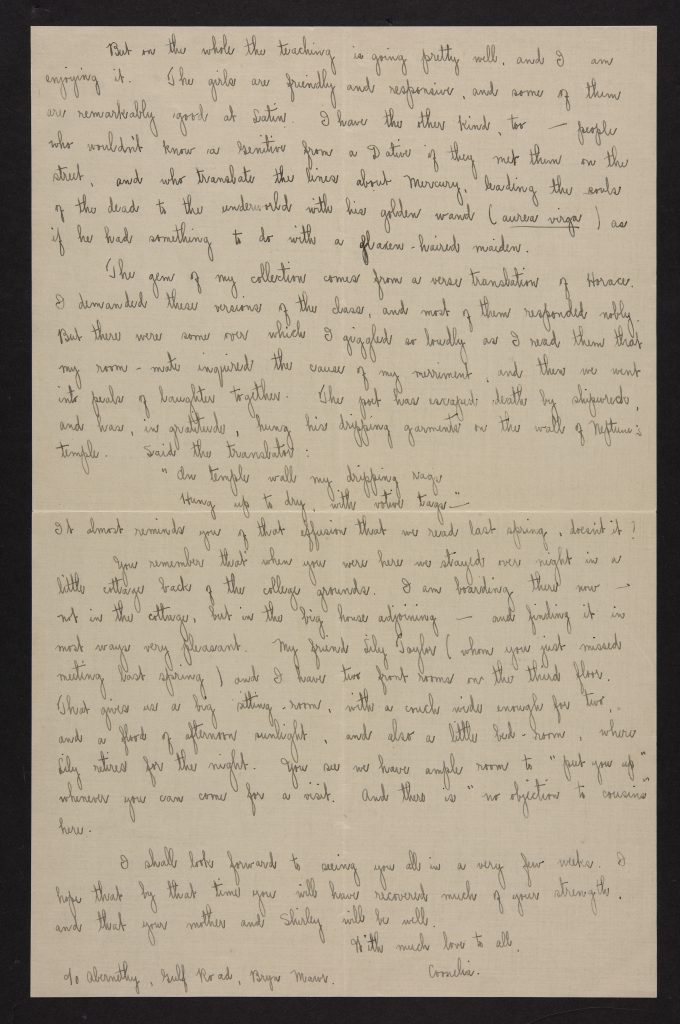 But on the whole the teaching is going pretty well, and I am
enjoying it. The girls are friendly and responsive, and some of them
are remarkably good at Latin. I have the other kind, too — people
who wouldn't know a Genitive from a Dative if they met them on the
street, and who translate the lines about Mercury, leading the souls
of the dead to the underworld with his golden wand (aurea virga) as
if he had something to do with a flaxen-haired maiden.
The gem of my collection comes from a verse translation of Horace.
I demanded these versions of the class, and most of them responded nobly.
But there were some over which I giggled so loudly as I read them that
my room-mate inquired the cause of my merriment, and then we went
into peals of laughter together. The poet has escaped death by shipwreck,
and has, in gratitude, hung his dripping garments on the wall of Neptune's
temple. Said the translator:
"On temple wall my dripping rags
Hung up to dry, with votive tags"—
It almost reminds you of that effusion that we read last spring, doesn't it?
You remember that when you were here we stayed over night in a
little cottage back of the college grounds. I am boarding there now —
not in the cottage, but in the big house adjoining — and finding it in
most ways very pleasant. My friend Lily Taylor (whom you just missed
meeting last spring) and I have two front rooms on the third floor.
That gives us a big sitting-room, with a couch wide enough for two,
and a flood of afternoon sunlight, and also a little bed-room, where
Lily retires for the night. You see we have ample room to "put you up"
whenever you can come for a visit. And there is "no objection to cousins"
here.
I shall look forward to seeing you all in a very few weeks. I
hope that by that time you will have recovered much of your strength,
and that your mother and Shirley will be well.
With much love to all,
Cornelia.
℅ Abernethy, Gulf Road, Bryn Mawr.